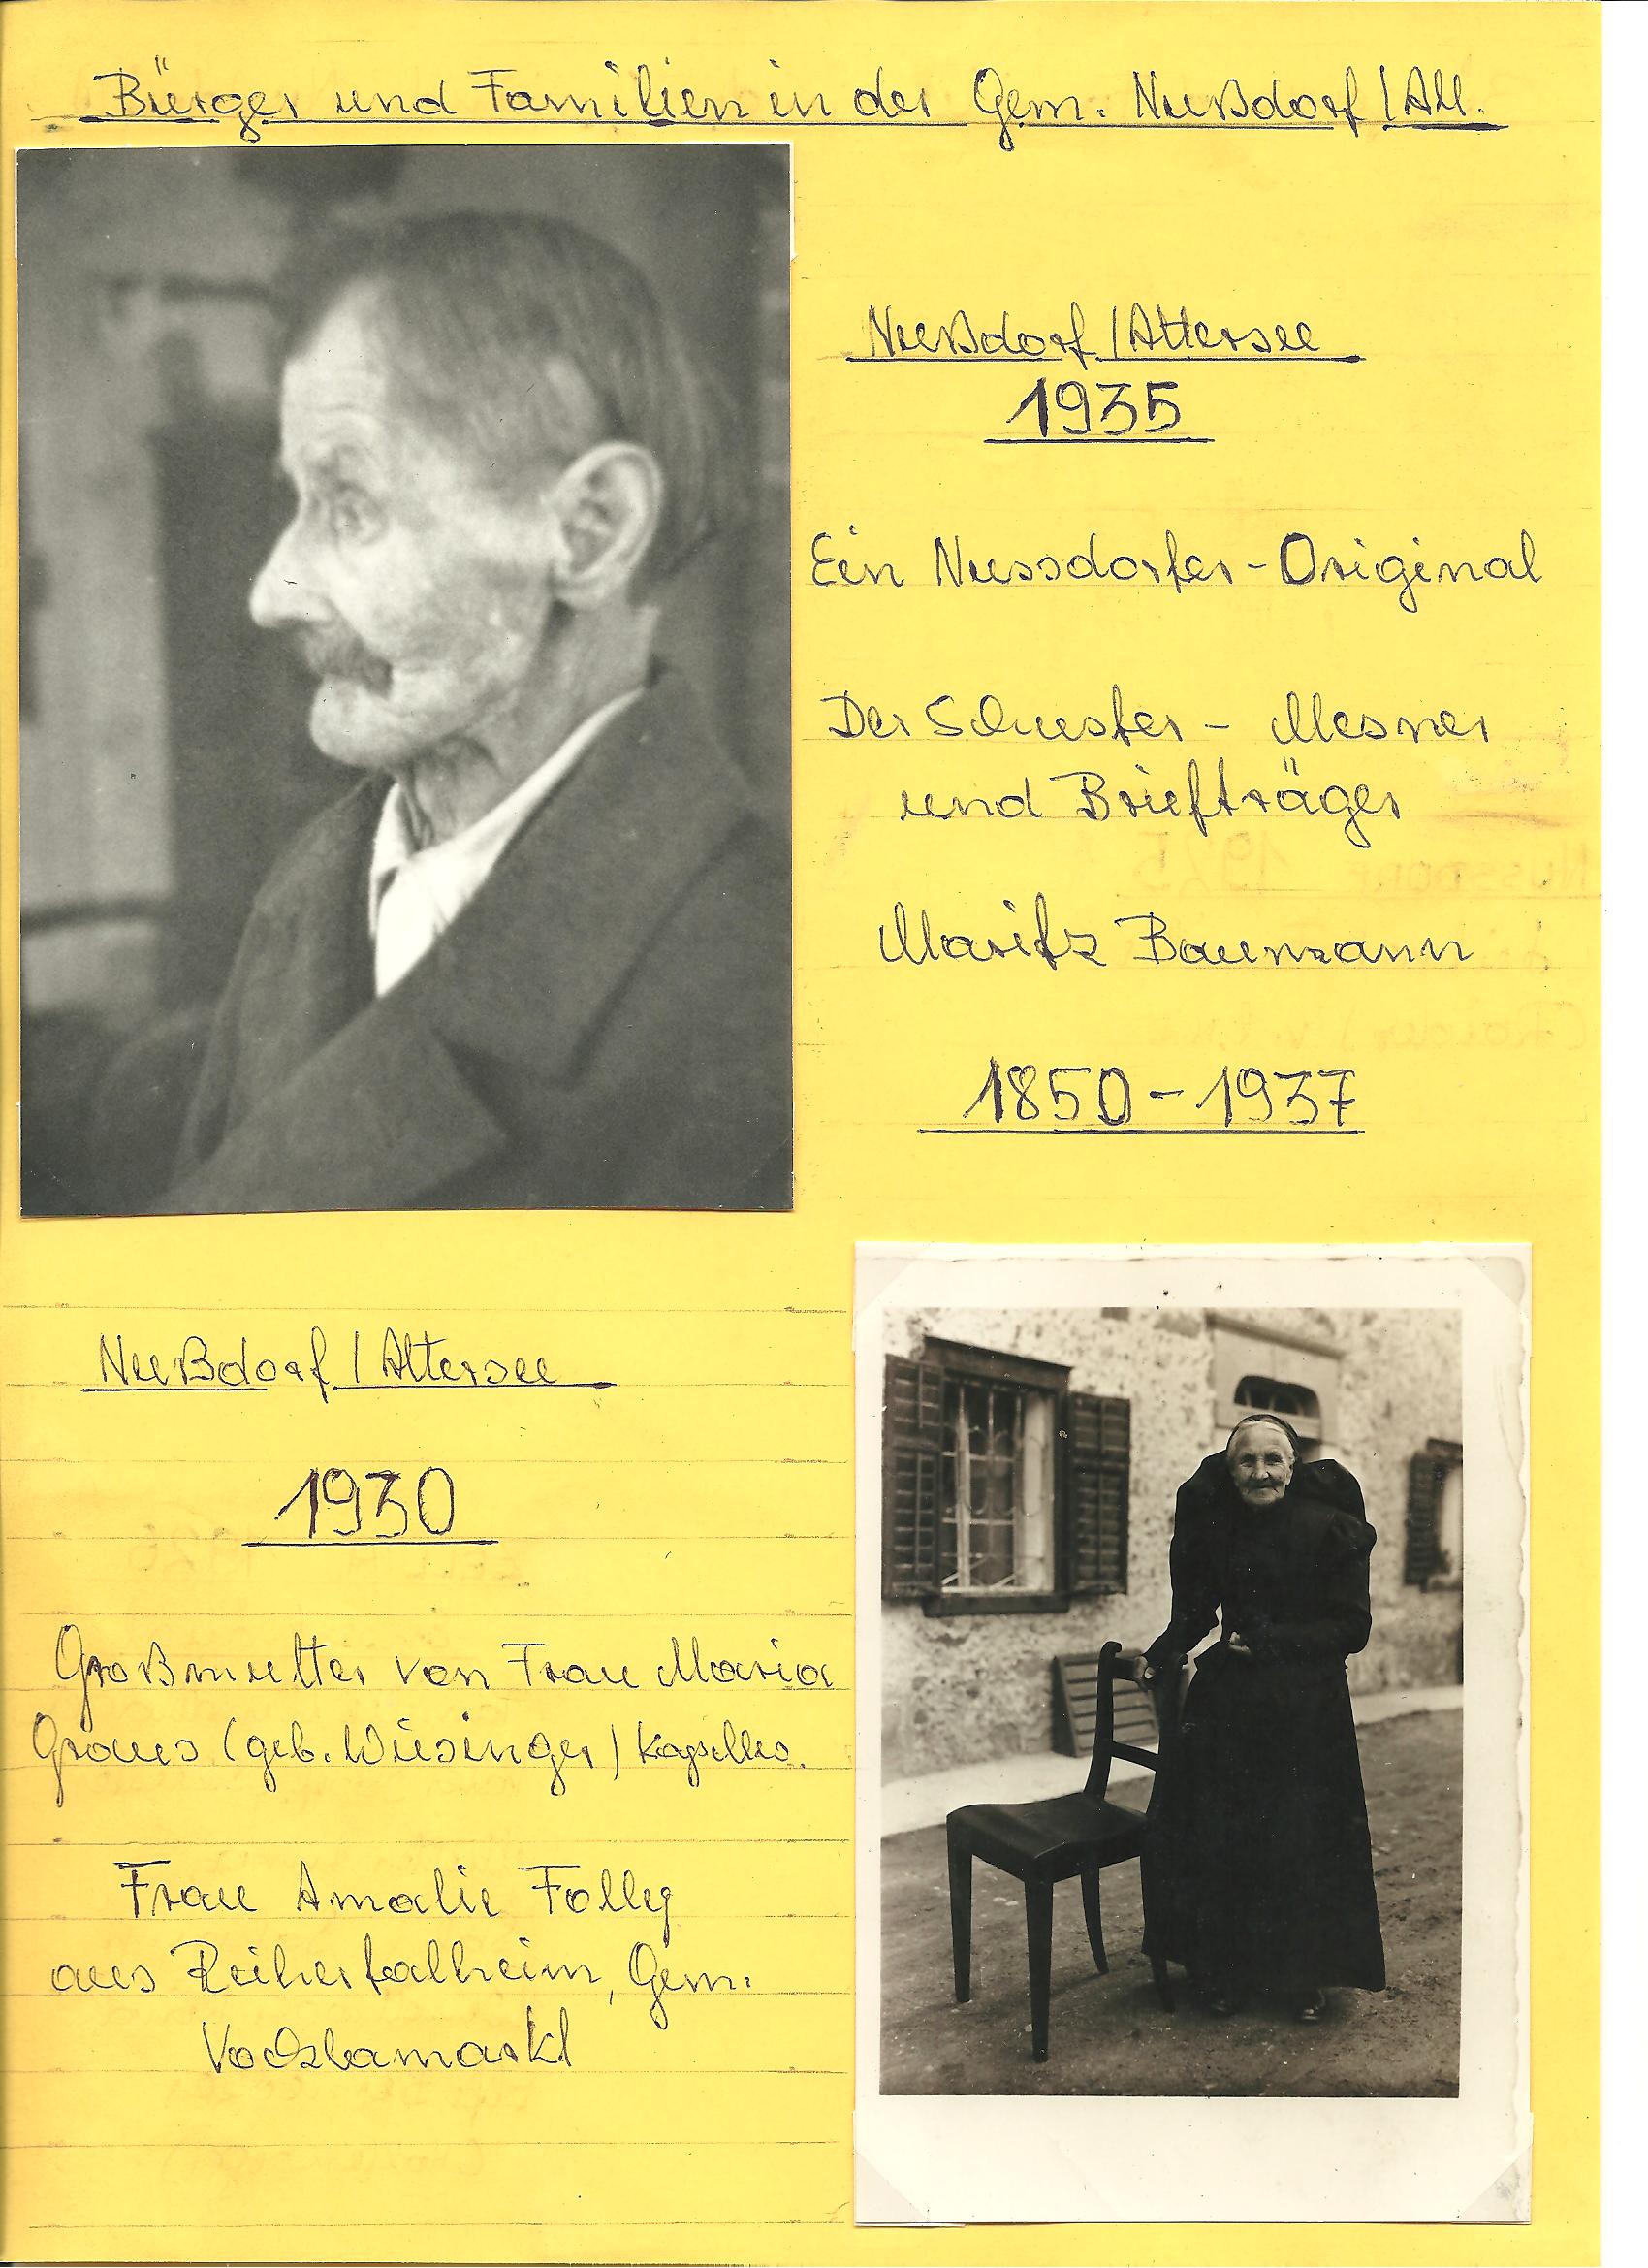 Bürger und Familien in der Gem. Nußdorf / Att.
Nußdorf / Attersee
1935
Ein Nussdorfer-Original
Der Schuster - Mesner
und Briefträger
Moritz Baumann
1850 - 1937
Nußdorf / Attersee
1930
Großmutter von Frau Maria
Graus (geb. Wiesinger)
Frau Amalie Folly
aus Reihertalheim, Gem.
Vöcklamarkt